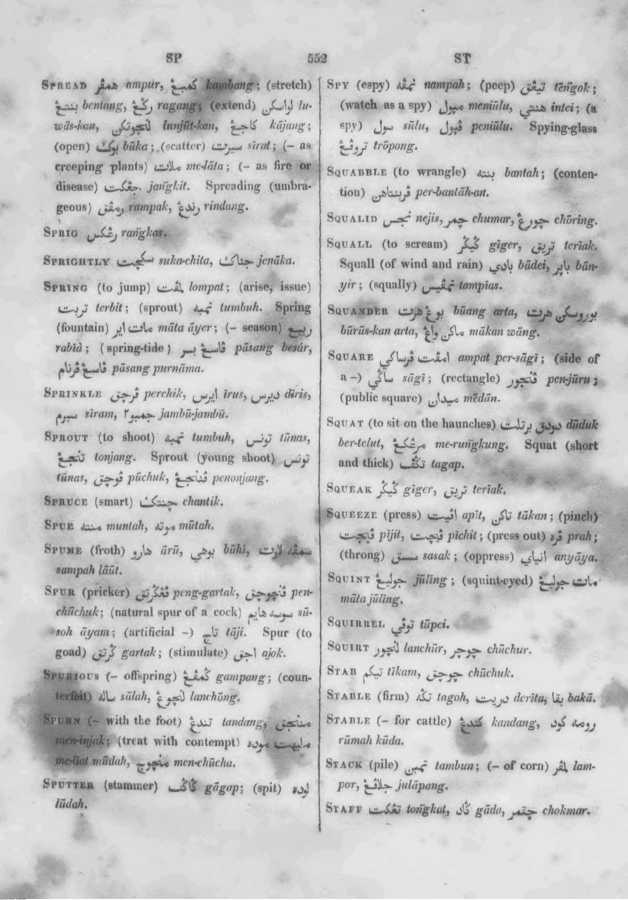 SP 552 ST
SPREAD همڤر ampur, كمبڠ kambang; (stretch)
بنتڠ bentang, رڬڠ ragang; (extend) لواسكن lu-
wās-kan, لنجوتكن lanjūt-kan, كاجڠ kājang;
(open) بوك būka; (scatter) سيرت sīrat; (– as
creeping plants) ملات me-lāta; (– as fire or
disease) جڠكت jangkit. Spreading (umbra-
geous) رمڤق rampak, رندڠ rindang.
SPRIG رڠكس rangkas.
SPRIGHTLY سكچيت suka-chita, جناك jenāka.
SPRING (to jump) لمڤت lompat; (arise, issue)
تربت terbit; (sprout) تمبه tumbuh. Spring
(fountain) مات اير māta āyer; (– season) ربيع
rabiā; (spring-tide) ڤاسڠ بسر pāsang besār,
ڤاسڠ ڤرنام pāsang purnāma.
SPRINKLE ڤرچق perchik, ايرس īrus, ديرس dīris,
سيرم sīram, جمبو٢ jambū-jambū.
SPROUT (to shoot) تمبه tumbuh, تونس tūnas,
تنجڠ tonjang. Sprout (young shoot) تونس
tūnas, ڤوچق pūchuk, ڤننجڠ penonjang.
SPRUCE (smart) چنتك chantik.
SPUE منته muntah, موته mūtah.
SPUME (froth) هارو ūrū, بوهي būhī, سمڤه لاوت
sampah lāūt.
SPUR (pricker) ڤڠڬرتق peng-gartak, ڤنچوچق pen-
chūchuk; (natural spur of a cock) سوسه هايم sū-
soh āyam; (artificial –) تاج tāji. Spur (to
goad) ڬرتق gartak; (stimulate) اجق ajok.
SPURIOUS (– offspring) ڬمڤڠ gampang; (coun-
terfeit) ساله sūlah, لنچوڠ lanchūng.
SPURN (– with the foot) تندڠ tandang, مننجق
men-injak; (treat with contempt) مليهت موده
me-liat mūdah, منچوچ men-chūcha.
SPUTTER (stammer) ڬاڬڤ gāgap; (spit) لوده
lūdah.
SPY (espy) نمڤه nampah; (peep) تيڠق tēngok;
(watch as a spy) ميولو meniūlu, هنتي intei; (a
spy) سولو sūlu, ڤيولو peniūlu. Spying-glass
تروڤڠ trōpong.
SQUABBLE (to wrangle) بنته bantah; (conten-
tion) ڤربنتاهن per-bantāh-an.
SQUALID نجس nejis, چمر chumar, چورڠ chōring.
SQUALL (to scream) ڬيڬر gīger, تريق teriak.
Squall (of wind and rain) بادي bādei, باير bān-
yir; (squally) تمڤيس tampias.
SQUANDER بوڠ هرت būang arta, بوروسكن هرت
būrūs-kan arta, ماكن واڠ mākan wāng.
SQUARE امڤت ڤرساڬي ampat per-sāgi; (side of
a –) ساڬي sāgi; (rectangle) ڤنجورو pen-jūru;
(public square) ميدان mēdān.
SQUAT (to sit on the haunches) دودق برتلت dūduk
ber-telut, مرڠكڠ me-rungkung. Squat (short
and thick) تڬڤ tagap.
SQUEAK ڬيڬر gīger, تريق teriak.
SQUEEZE (press) اڤيت apīt, تاكن tākan; (pinch)
ڤيجت pījit, ڤيچت pīchit; (press out) ڤره prah;
(throng) سسق sasak; (oppress) انياي anyāya.
SQUINT جوليڠ jūling; (squint-eyed) مات جوليڠ
māta jūling.
SQUIRREL توڤي tūpei.
SQUIRT لنچور lanchūr, چوچر chūchur.
STAB تيكم tīkam, چوچق chūchuk.
STABLE (firm) تڬه tagoh, دريت derīta, بقا bakā.
STABLE (– for cattle) كندڠ kandang, رومه كود
rūmah kūda.
STACK (pile) تمبن tambun; (– of corn) لمڤر lam-
por, جلاڤڠ julāpang.
STAFF تڠكت tongkat, ڬاد gāda, چقمر chokmar.